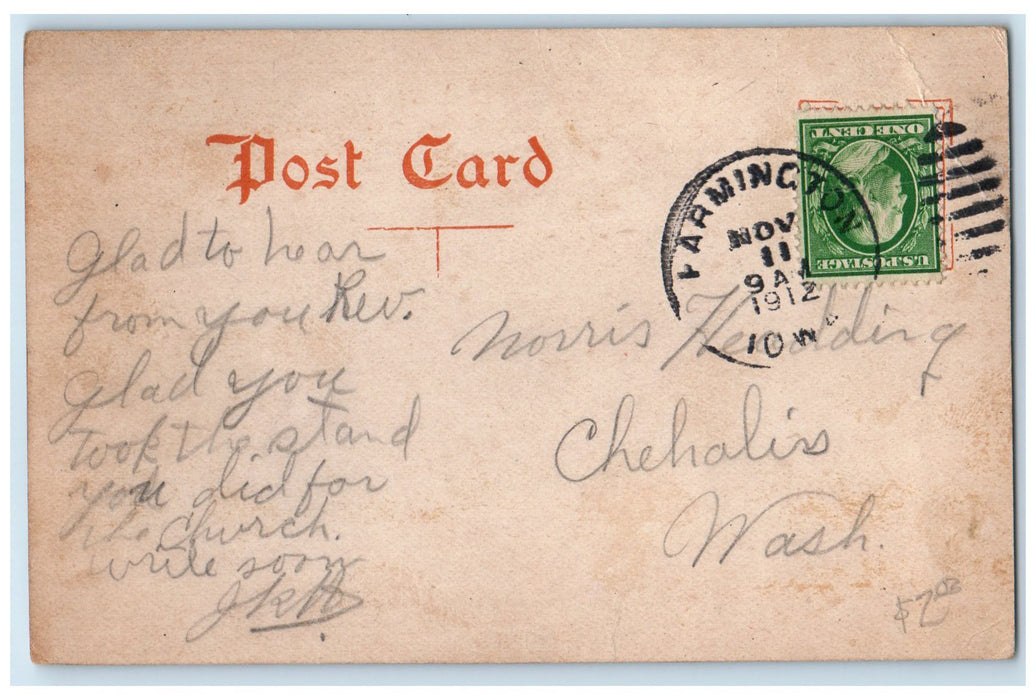 Post Card
ONE CENT
U.S. POSTAGE
FARMINGTON
NOV
11
9 AM
1912
IOWA
Glad to hear
from you Rev.
Glad you
Took the stand
you did for
the Church.
write soon
JKH
Norris Hedding
Chehalis
Wash.